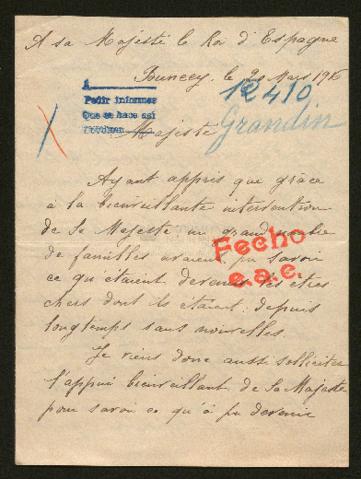 A sa Majesté le Roi d'Espagne
Buncey, le 20 Mars 1916
A
Pedir informes
Que se hace asi
12410
Majesté
Grandin
Ayant appris que grâce
à la bienveillante intervention
de Sa Majesté un grand nombre
de familles avaient pu savoir
ce qu'étaient devenus des êtres
chers dont ils étaient depuis
longtemps sans nouvelles.
Fecho
e.a.e.
Je viens donc aussi solliciter
l'appui bienveillant de Sa Majesté
pour savoir ce qu'à pu devenir